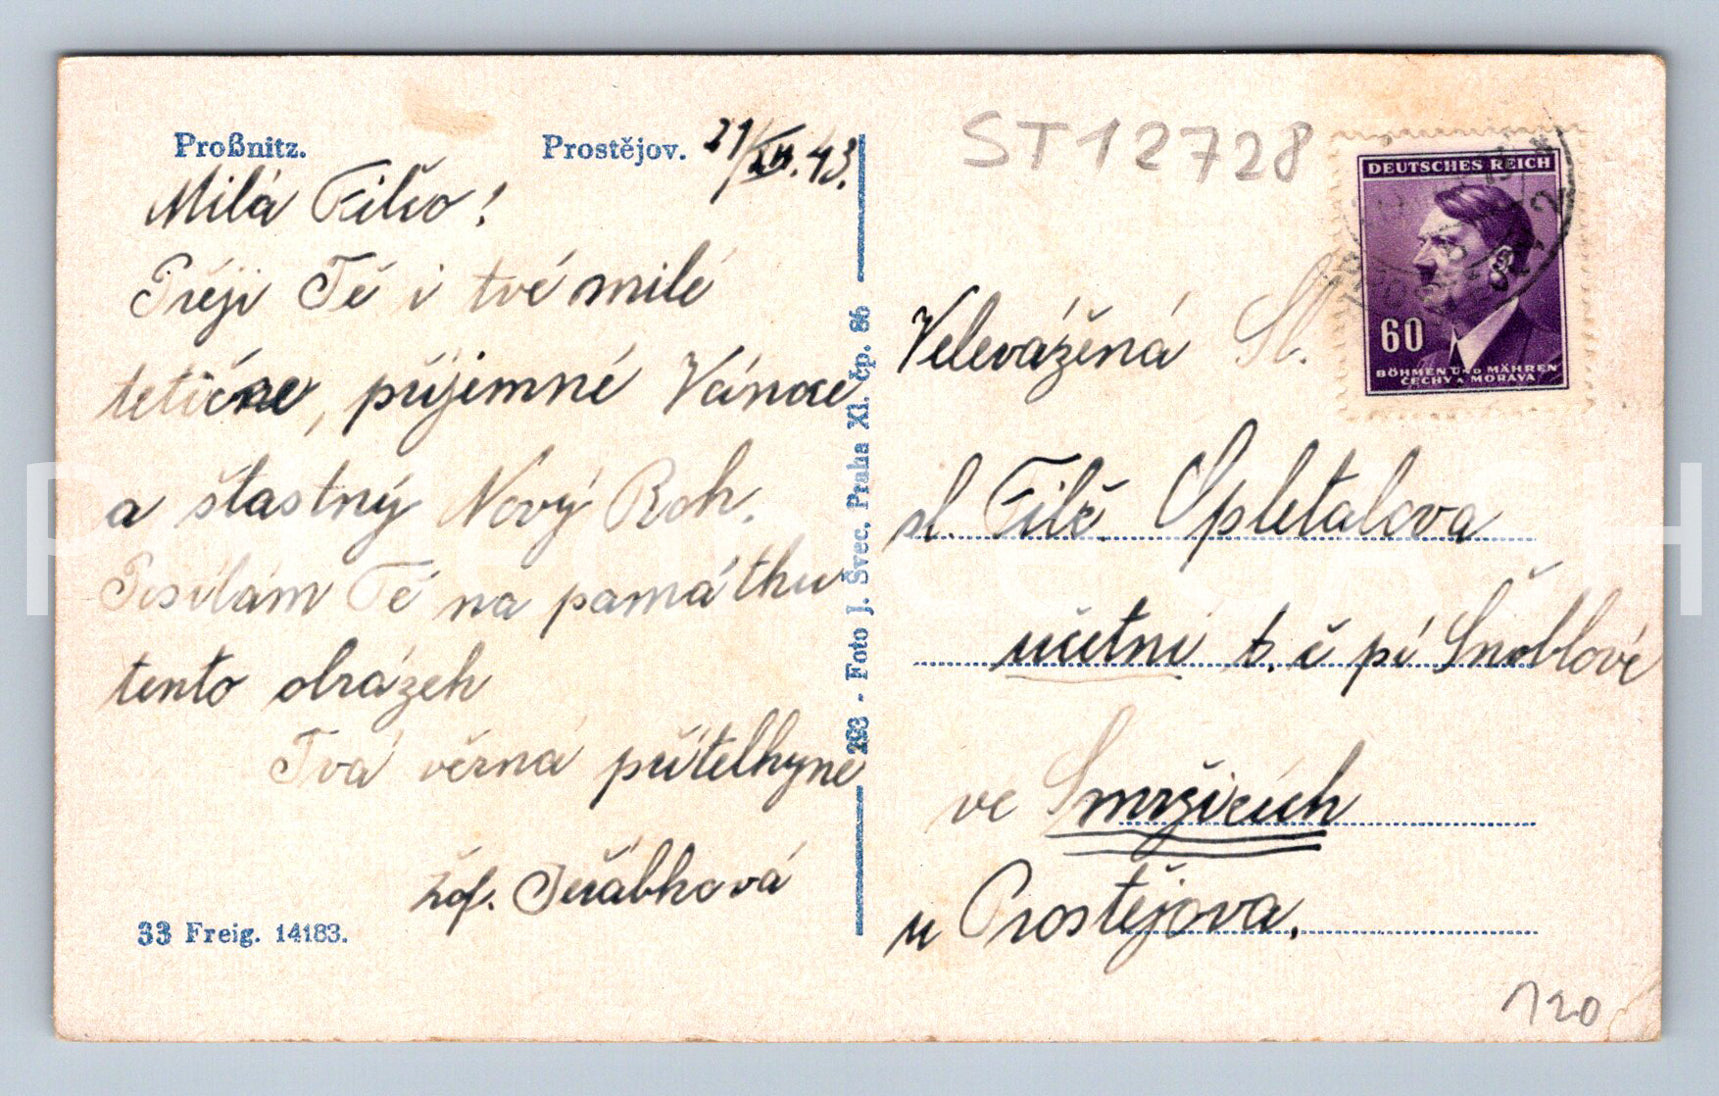 Proßnitz. Prostějov. 21/XII.43.
Milá Filčo!
Přeji Tě i tvé milé
tetične, příjemné Vánoce
a štastný Nový Rok.
Posílám Tě na památku
tento obrázek
Tvá věrná přítelkyně
Žof. Jeřábková
33 Freig. 14183.
293 - Foto J. Švec, Praha XI. čp. 86
ST12728
DEUTSCHES REICH
60
BÖHMEN UND MÄHREN
ČECHY A MORAVA
Velevážená Sl.
sl. Filč. Opletalova
účetní t. č pí Šnoblové
ve Smržicích
u Prostějova.
120